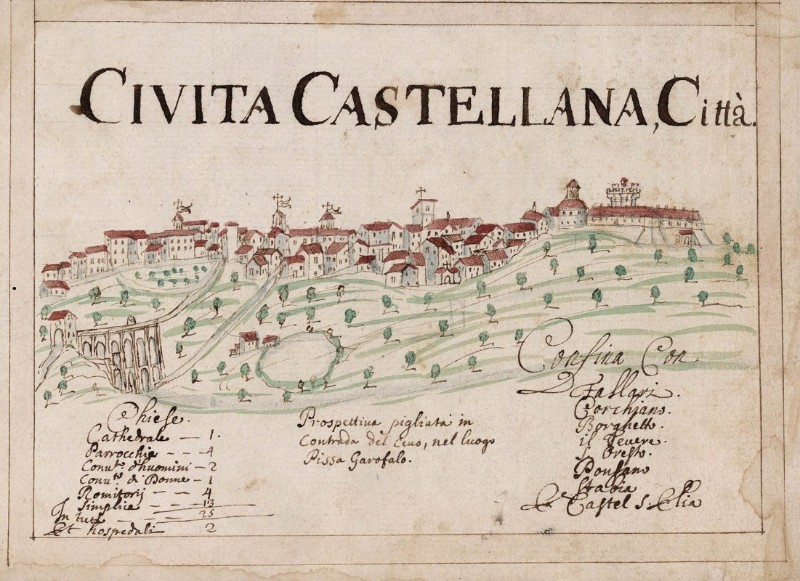 CIVITA CASTELLANA, Città.
Chiese.
Cathedrale — 1.
Parrocchie — — 4
Conv.ti d'huomini — 2
Conv.to di Donne — 1
Romitorij — — 4
Simplici — — — 13
In tutt — — — 25
Et hospedali 2
Prospettiva pigliata in
Contrada del Ceuo, nel luogo
Pissa Garofalo.
Confina Con
Fallari.
Corchiano.
Borghetto.
il Tevere.
S. Oresto.
Ponsano
Stabia
E Castel S. Elia